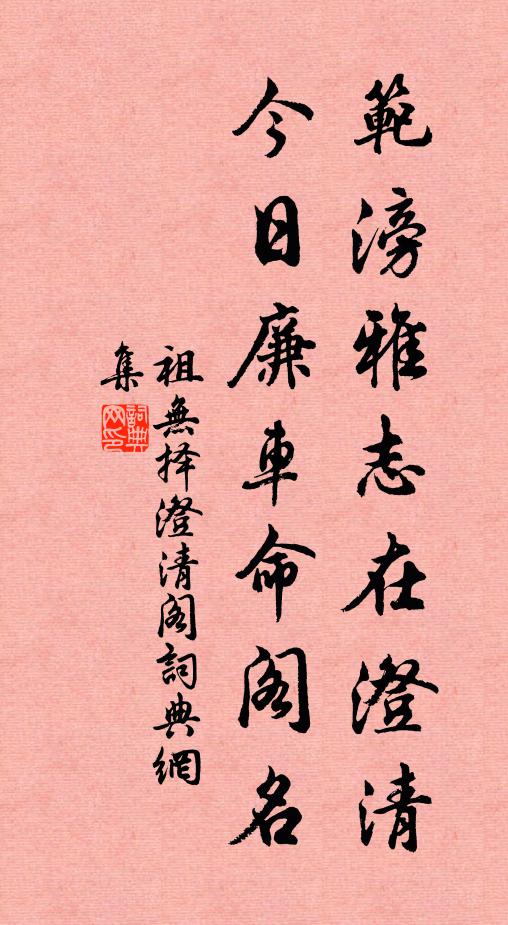 範滂雅志在澄清
今日廉車命阁名
祖無择澄清阁詞典網
集
詞典
网印